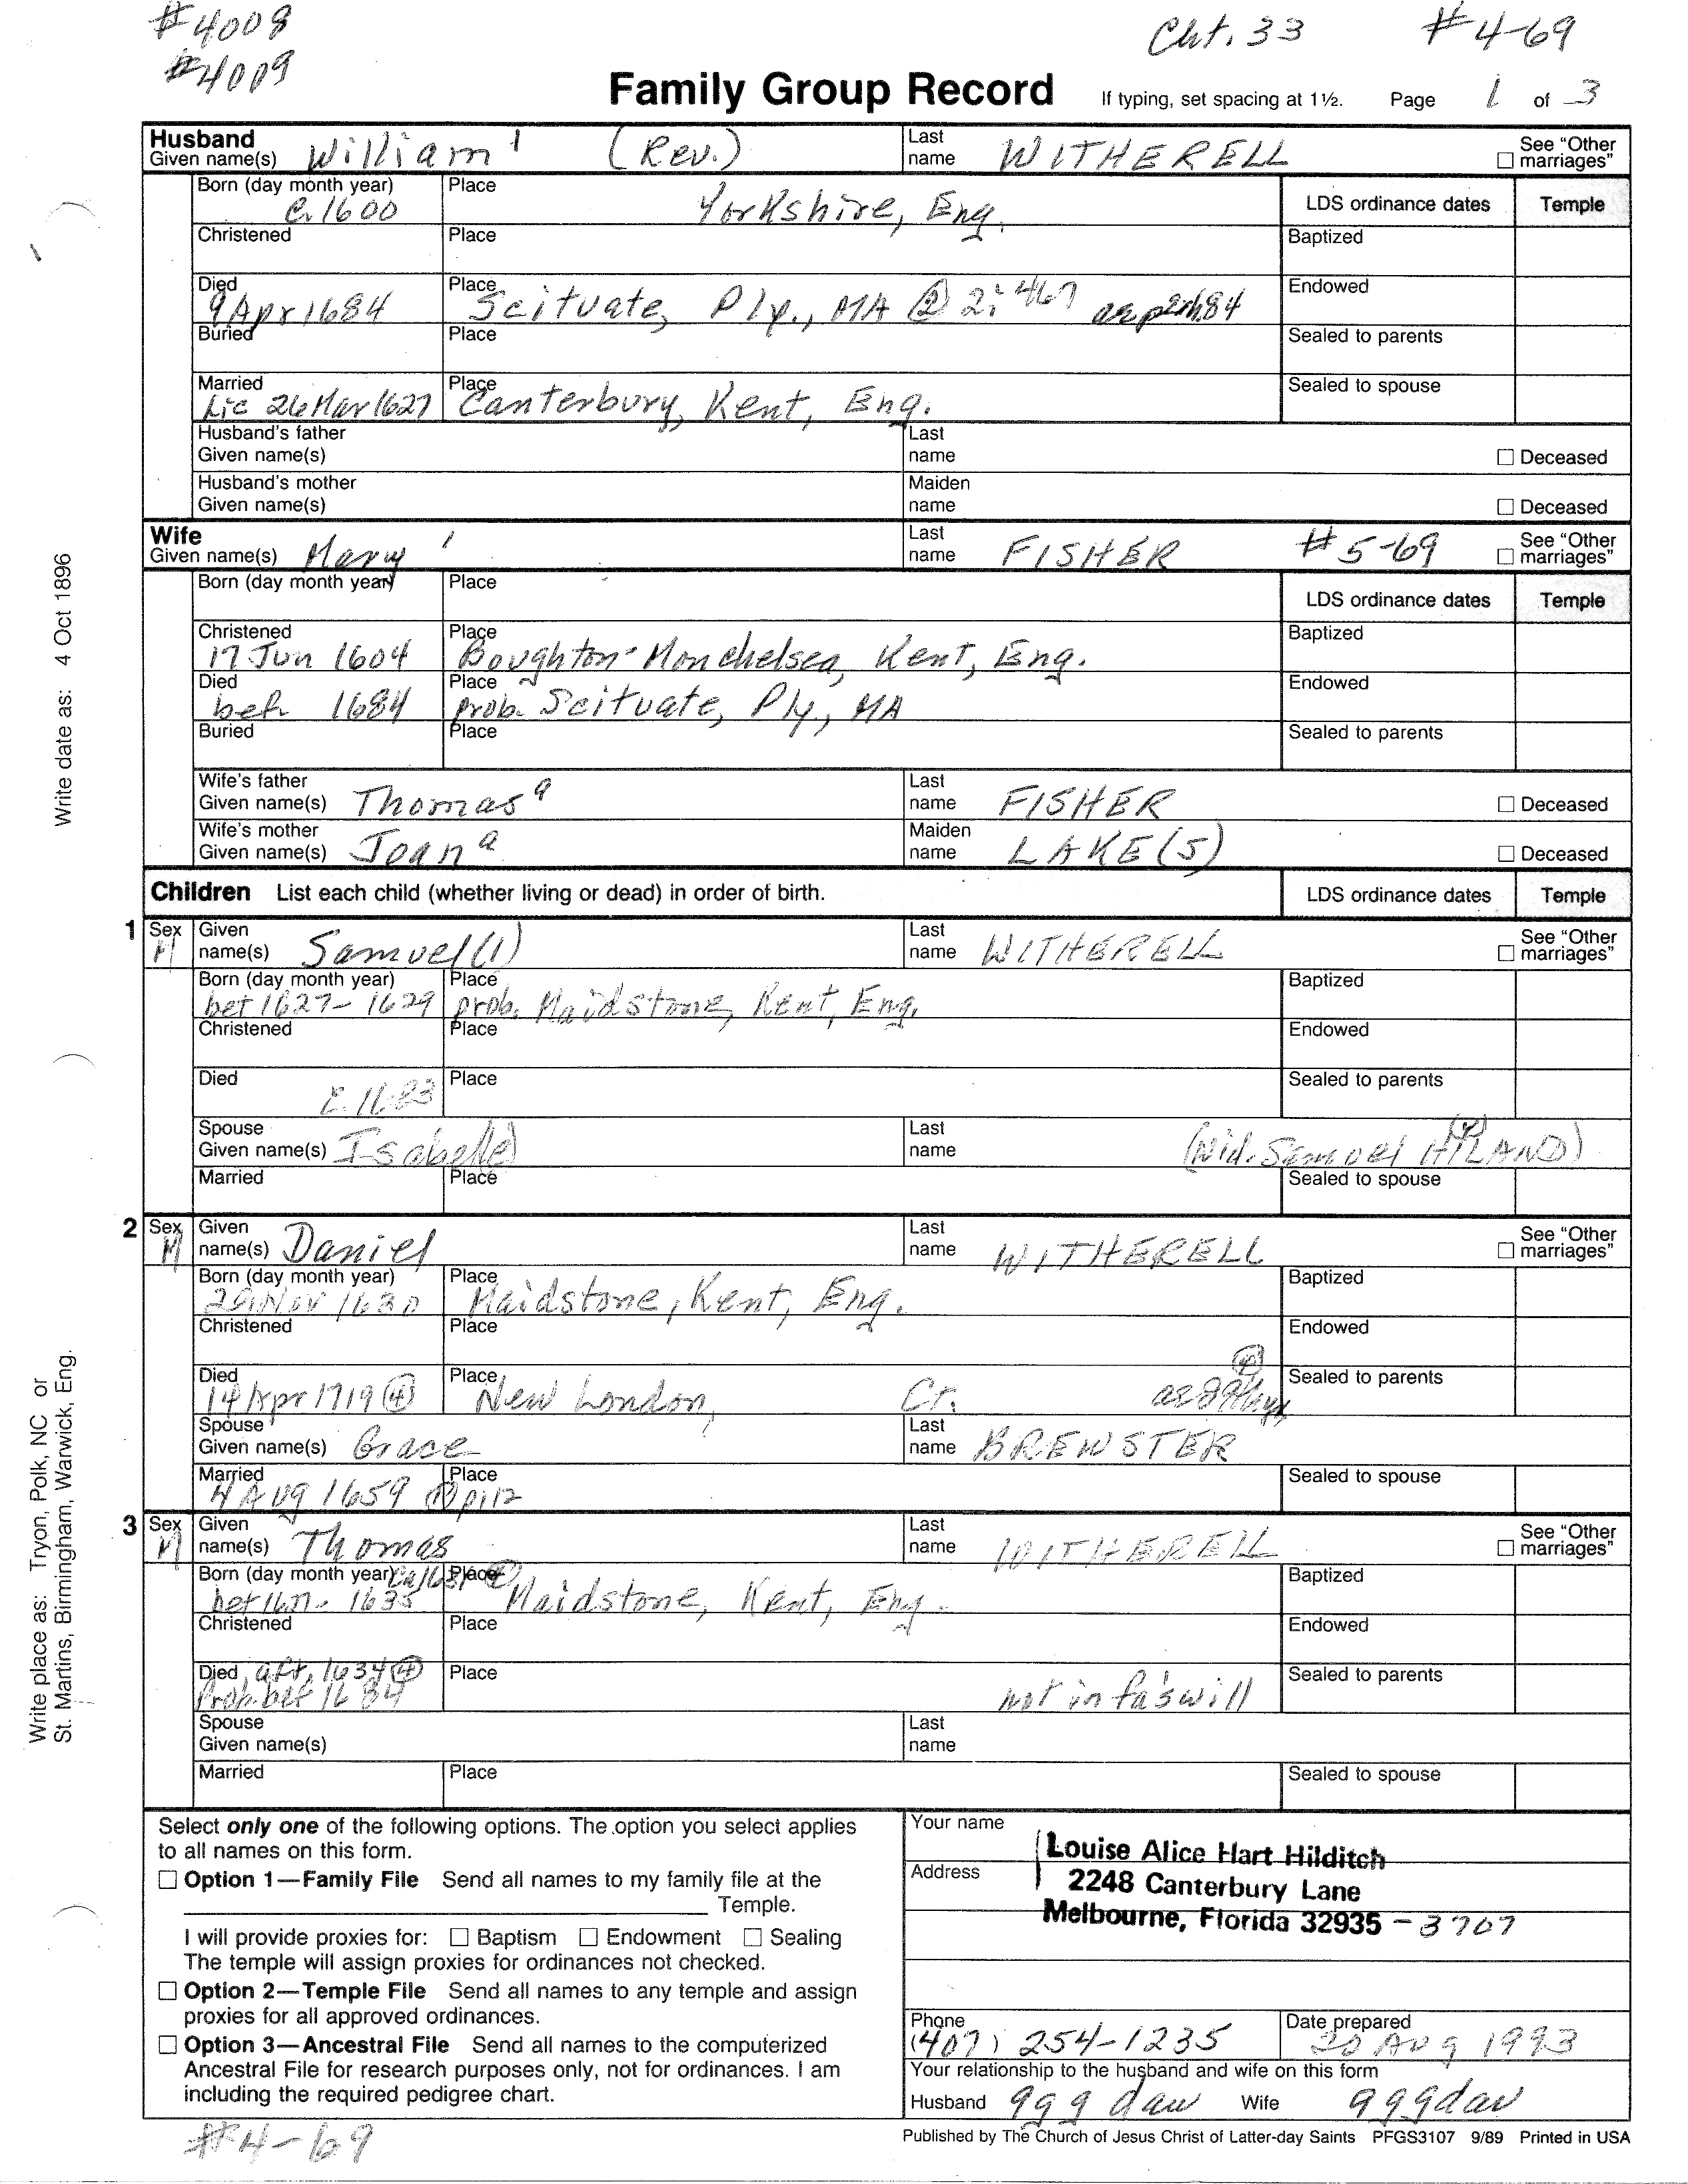 #4008
#4009
Cht. 33 #4-69
Family Group Record If typing, set spacing at 1½. Page 1 of 3
Husband Last See "Other
Given name(s) William 1 (Rev.) name WITHERELL ☐ marriages"
Born (day month year) Place LDS ordinance dates Temple
c. 1600 Yorkshire, Eng.
Christened Place Baptized
Died Place Endowed
9 Apr 1684 Scituate, Ply., MA @ 2:467
Buried Place Sealed to parents
Married Place Sealed to spouse
Lic 26 Mar 1627 Canterbury, Kent, Eng.
Husband's father Last
Given name(s) name ☐ Deceased
Husband's mother Maiden
Given name(s) name ☐ Deceased
Wife Last See "Other
Given name(s) Mary 1 name FISHER #5-69 ☐ marriages"
Born (day month year) Place LDS ordinance dates Temple
Christened Place Baptized
17 Jun 1604 Boughton-Monchelsea, Kent, Eng.
Died Place Endowed
bef. 1684 prob. Scituate, Ply., MA
Buried Place Sealed to parents
Wife's father Last
Given name(s) Thomas a name FISHER ☐ Deceased
Wife's mother Maiden
Given name(s) Joan a name LAKE(S) ☐ Deceased
Children List each child (whether living or dead) in order of birth. LDS ordinance dates Temple
1 Sex Given Last See "Other
M name(s) Samuel (1) name WITHERELL ☐ marriages"
Born (day month year) Place Baptized
bet 1627-1629 prob. Maidstone, Kent, Eng.
Christened Place Endowed
Died c. 1683 Place Sealed to parents
Spouse Last
Given name(s) Isabelle name (Wid. Samuel HILAND)
Married Place Sealed to spouse
2 Sex Given Last See "Other
M name(s) Daniel name WITHERELL ☐ marriages"
Born (day month year) Place Baptized
29 Nov 1630 Maidstone, Kent, Eng.
Christened Place Endowed
Died Place Sealed to parents
14 Apr 1719 (4) New London, Ct.
Spouse Last
Given name(s) Grace name BREWSTER
Married Place Sealed to spouse
4 Aug 1659
3 Sex Given Last See "Other
M name(s) Thomas name WITHERELL ☐ marriages"
Born (day month year) Place Baptized
Maidstone, Kent, Eng.
Christened Place Endowed
Died aft. 1634 (4) Place Sealed to parents
Prob. bef 1684 not in fa's will
Spouse Last
Given name(s) name
Married Place Sealed to spouse
Select only one of the following options. The option you select applies
to all names on this form.
☐ Option 1—Family File Send all names to my family file at the
Temple.
I will provide proxies for: ☐ Baptism ☐ Endowment ☐ Sealing
The temple will assign proxies for ordinances not checked.
☐ Option 2—Temple File Send all names to any temple and assign
proxies for all approved ordinances.
☐ Option 3—Ancestral File Send all names to the computerized
Ancestral File for research purposes only, not for ordinances. I am
including the required pedigree chart.
Your name Louise Alice Hart Hilditch
Address 2248 Canterbury Lane
Melbourne, Florida 32935 - 3707
Phone Date prepared
(407) 254-1235 20 Aug 1993
Your relationship to the husband and wife on this form
Husband ggg dau Wife gggdau
#4-69
Published by The Church of Jesus Christ of Latter-day Saints PFGS3107 9/89 Printed in USA
Write date as: 4 Oct 1896
Write place as: Tryon, Polk, NC or
St. Martins, Birmingham, Warwick, Eng.